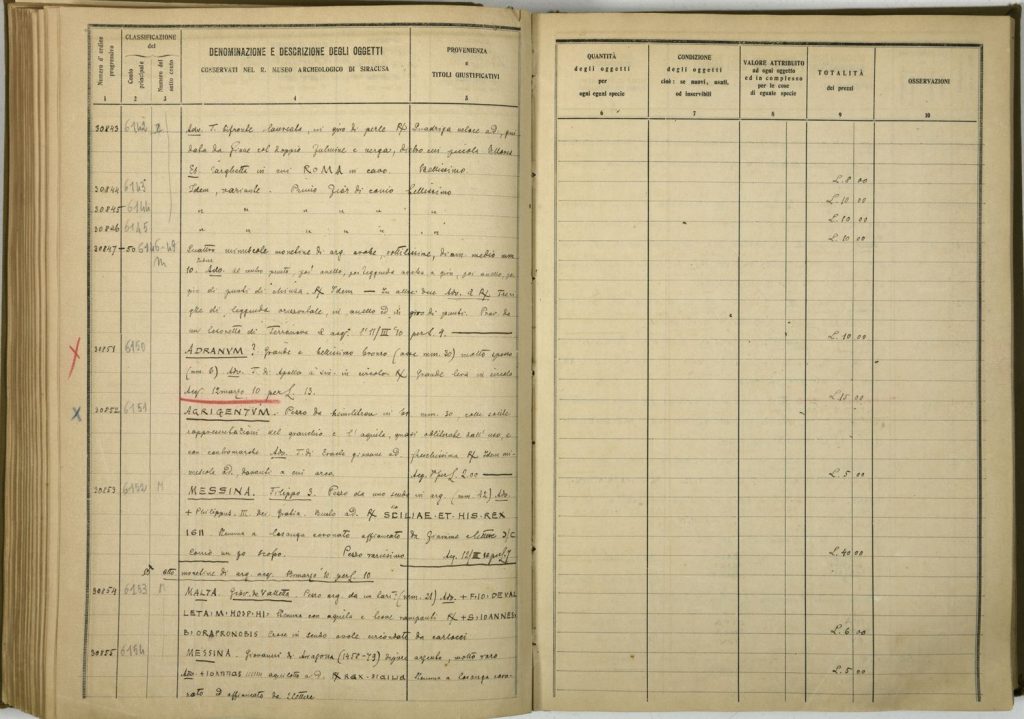 Numero d'ordine progressivo
CLASSIFICAZIONE del
Conto principale
Numero del sotto conto
DENOMINAZIONE E DESCRIZIONE DEGLI OGGETTI
CONSERVATI NEL R. MUSEO ARCHEOLOGICO DI SIRACUSA
PROVENIENZA
e
TITOLI GIUSTIFICATIVI
1 2 3 4 5
30843 6142 Adv. T. bifronte laureata, in giro di perle R) Quadriga veloce a d., gui
data da Giove col doppio fulmine e verga, dietro cui piccola
Es. targhetta in cui ROMA in cavo. Bellissimo
30844 6143 Idem, variante. Primo fior di conio bellissimo
30845 6144 " " " " " "
30846 6145 " " " " " "
30847-50 6146-49 Quattro minuscole monetine di arg. arabe, sottilissime, diam. medio mm.
M 10. Adv. nel centro punto, poi anello, poi leggenda in giro, poi anello,
giro di punti di R) Idem — In altre due Adv. e R) Tre ri
ghe di leggenda orizzontale, in anello ed in giro di punti. Prov. da
un tesoretto di Terranova e acq. l'11/III 10 per L. 9.
X 30851 6150 ADRANVM? Grande e bellissimo bronzo (asse mm. 30) molto spesso
(mm. 6) Adv. T. di Apollo a sin. in circolo R) Grande lira in circolo
Acq. 12 marzo 10 per L. 13.
X 30852 6151 AGRIGENTVM. Pezzo da hemilitron in mm. 30 colle solite
rappresentazioni del granchio e l'aquila, quasi obliterate dall'uso, e
con contromarche Adv. T. di Eracle giovane a d. freschissima R) Idem mi-
nuscole d., davanti a cui arco. Acq. per L. 2.00
30853 6152 M MESSINA. Filippo 3. Pezzo da uno scudo in arg. (mm. 42) Adv.
+ Philippus. III. Dei. Gratia. Busto a d. R) SCILIAE·ET·HIS·REX
1611 Stemma a losanga coronato affiancato da Giarrone e lettere D/C
Conio un po Pezzo rarissimo Acq. 12/III 10 per L. 7
otto monetine di arg. acq. 13 marzo '10 per L. 10
30854 6153 M MALTA. Giov. de Valletta. Pezzo arg. da un tarì (mm. 21) Adv. +F·IO·DEVAL
LETA·M·HOSP·HI· Stemma con aquila e leone rampanti R) +S·IOANNES
B·ORAPRONOBIS Croce in scudo ovale circondata da cartocci
30855 6154 MESSINA. Giovanni di Aragona (1458-79) argento, molto raro
Adv. aquila a d. R) REX·SICILIA Stemma a losanga coro-
nato ed affiancato da 2 lettere
QUANTITÀ
degli oggetti
per
ogni egual specie
CONDIZIONE
degli oggetti
cioè: se nuovi, usati,
od inservibili
VALORE ATTRIBUITO
ad ogni oggetto
ed in complesso
per le cose
di eguale specie
TOTALITÀ
dei prezzi
OSSERVAZIONI
6 7 8 9 10
L. 8 00
L. 10 00
L. 10 00
L. 10 00
L. 10 00
L. 15 00
L. 5 00
L. 40 00
L. 6 00
L. 5 00